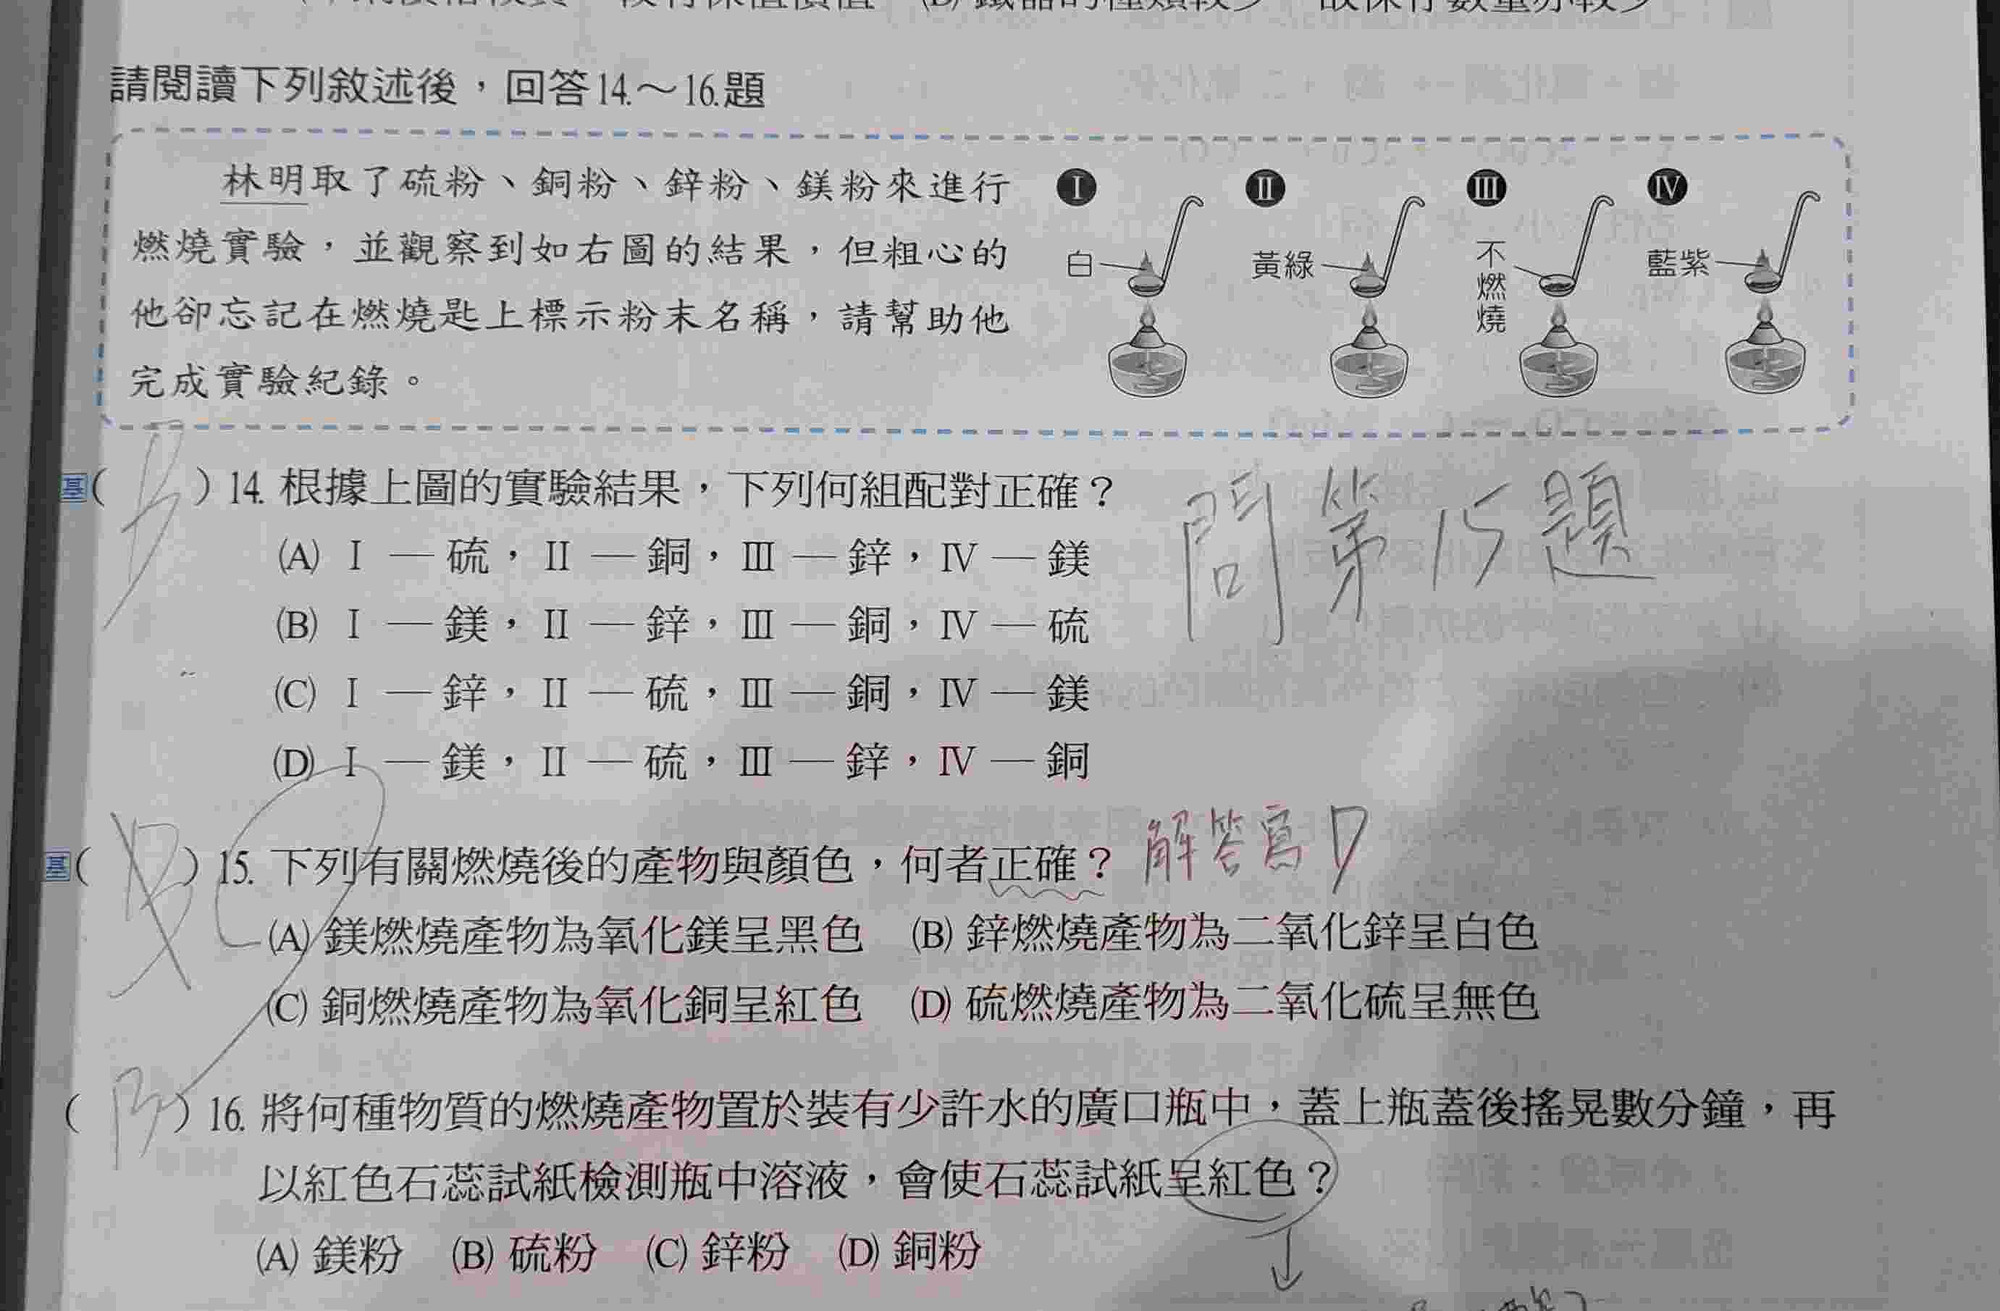 請閱讀下列敘述後，回答14.～16.題
林明取了硫粉、銅粉、鋅粉、鎂粉來進行
燃燒實驗，並觀察到如右圖的結果，但粗心的
他卻忘記在燃燒匙上標示粉末名稱，請幫助他
完成實驗紀錄。
Ⅰ
白
Ⅱ
黃綠
Ⅲ
不燃燒
Ⅳ
藍紫
基( B )14. 根據上圖的實驗結果，下列何組配對正確？
(A) Ⅰ—硫，Ⅱ—銅，Ⅲ—鋅，Ⅳ—鎂
(B) Ⅰ—鎂，Ⅱ—鋅，Ⅲ—銅，Ⅳ—硫
(C) Ⅰ—鋅，Ⅱ—硫，Ⅲ—銅，Ⅳ—鎂
(D) Ⅰ—鎂，Ⅱ—硫，Ⅲ—鋅，Ⅳ—銅
問第15題
基( )15. 下列有關燃燒後的產物與顏色，何者正確？ 解答寫D
(A) 鎂燃燒產物為氧化鎂呈黑色 (B) 鋅燃燒產物為二氧化鋅呈白色
(C) 銅燃燒產物為氧化銅呈紅色 (D) 硫燃燒產物為二氧化硫呈無色
( B )16. 將何種物質的燃燒產物置於裝有少許水的廣口瓶中，蓋上瓶蓋後搖晃數分鐘，再
以紅色石蕊試紙檢測瓶中溶液，會使石蕊試紙呈紅色？
(A) 鎂粉 (B) 硫粉 (C) 鋅粉 (D) 銅粉